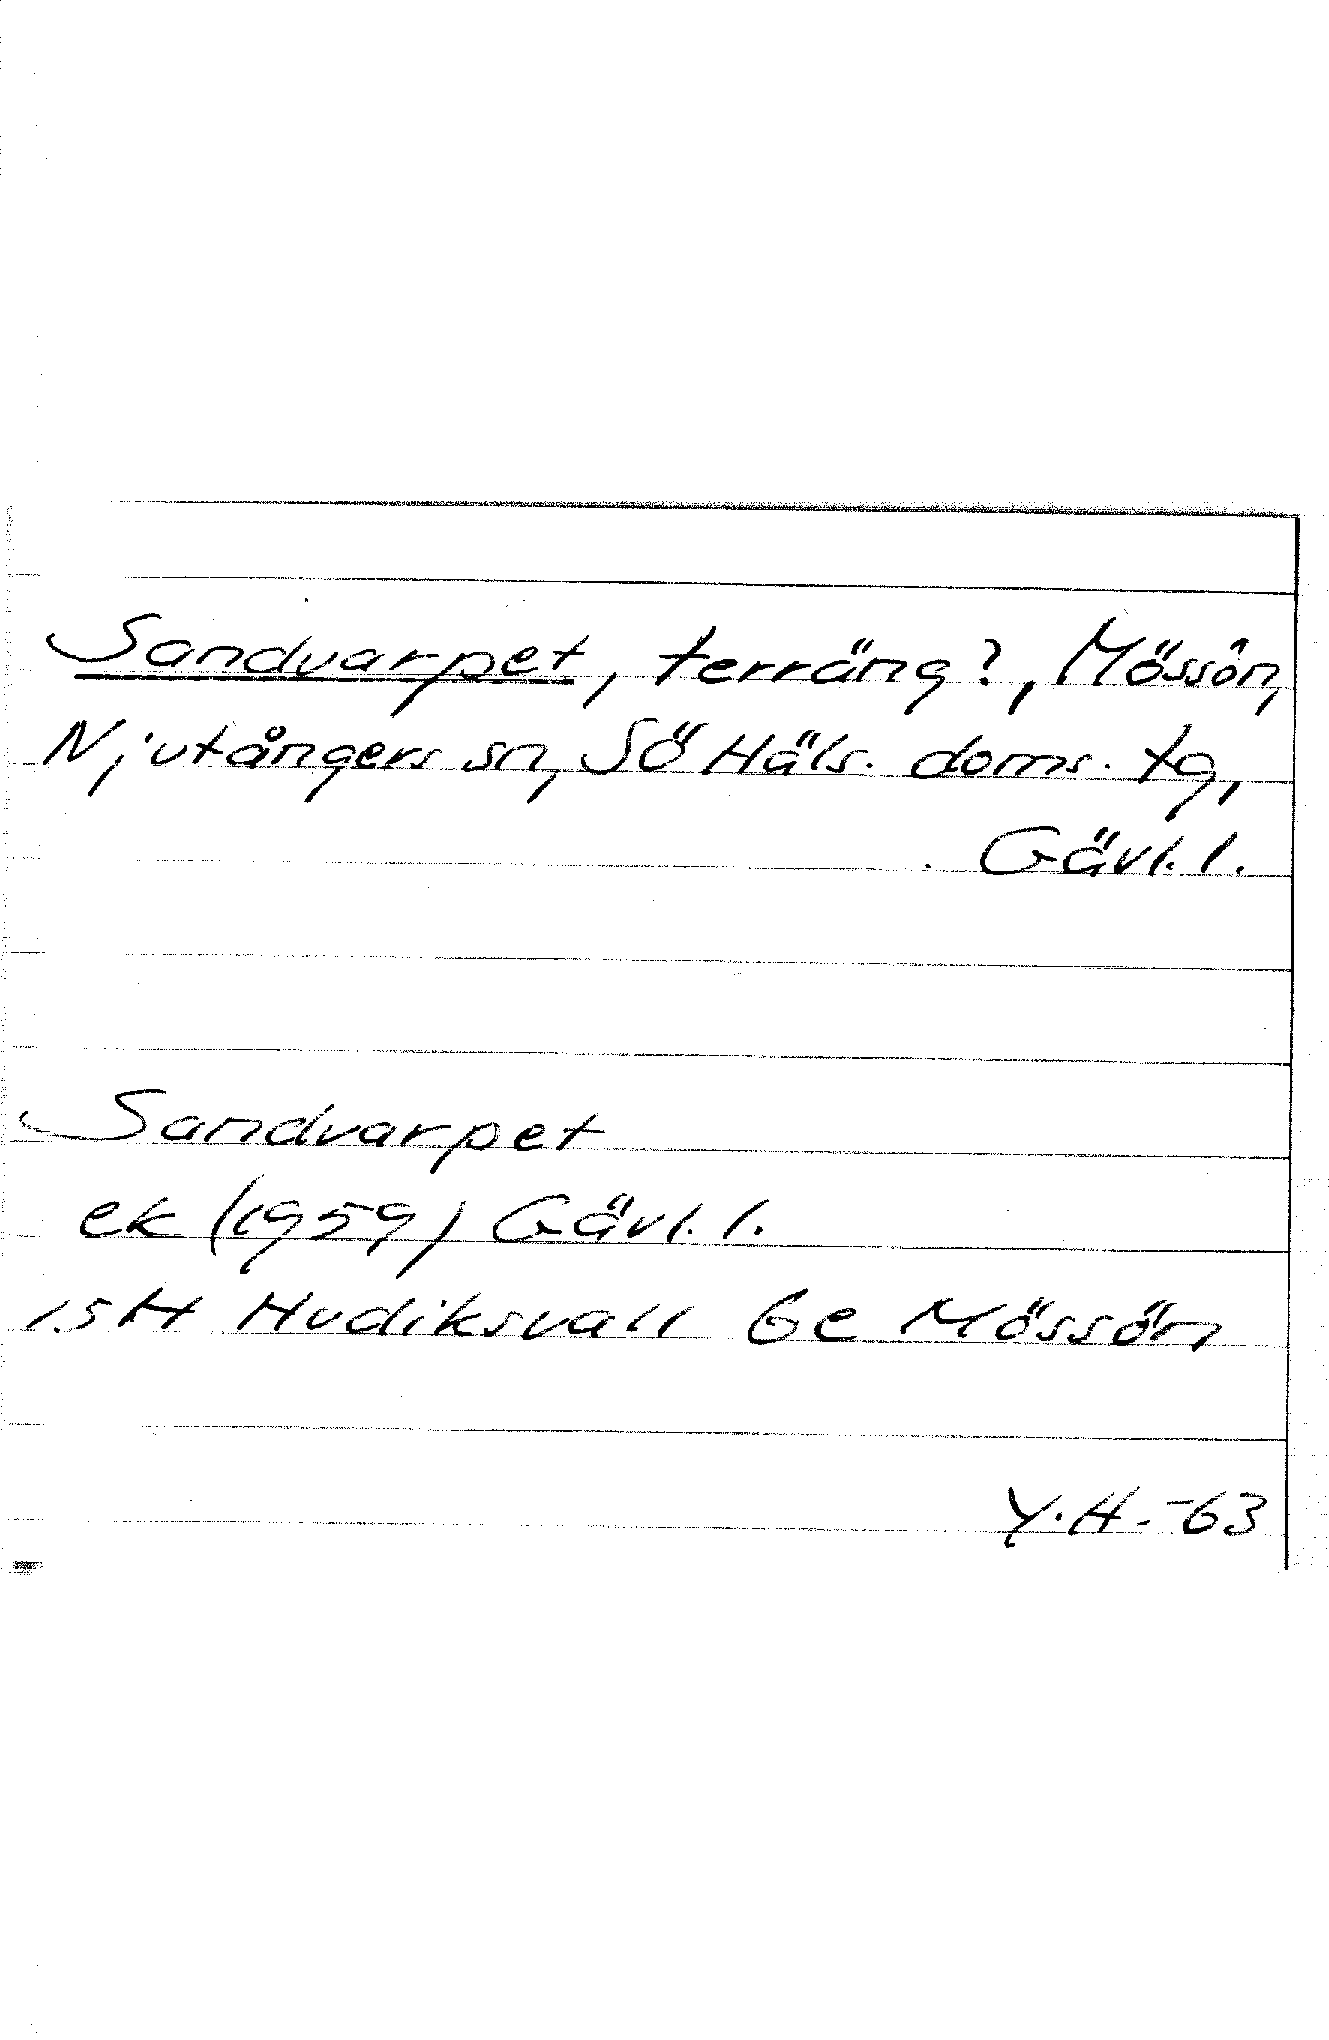 Sandvarpet, terräng?, Mössön,
Njutångers sn, Sö Häls. doms. tg,
Gävl. l.
Sandvarpet
ek (1959) Gävl. l.
15H Hudiksvall 6e Mössön
Y.H. -63